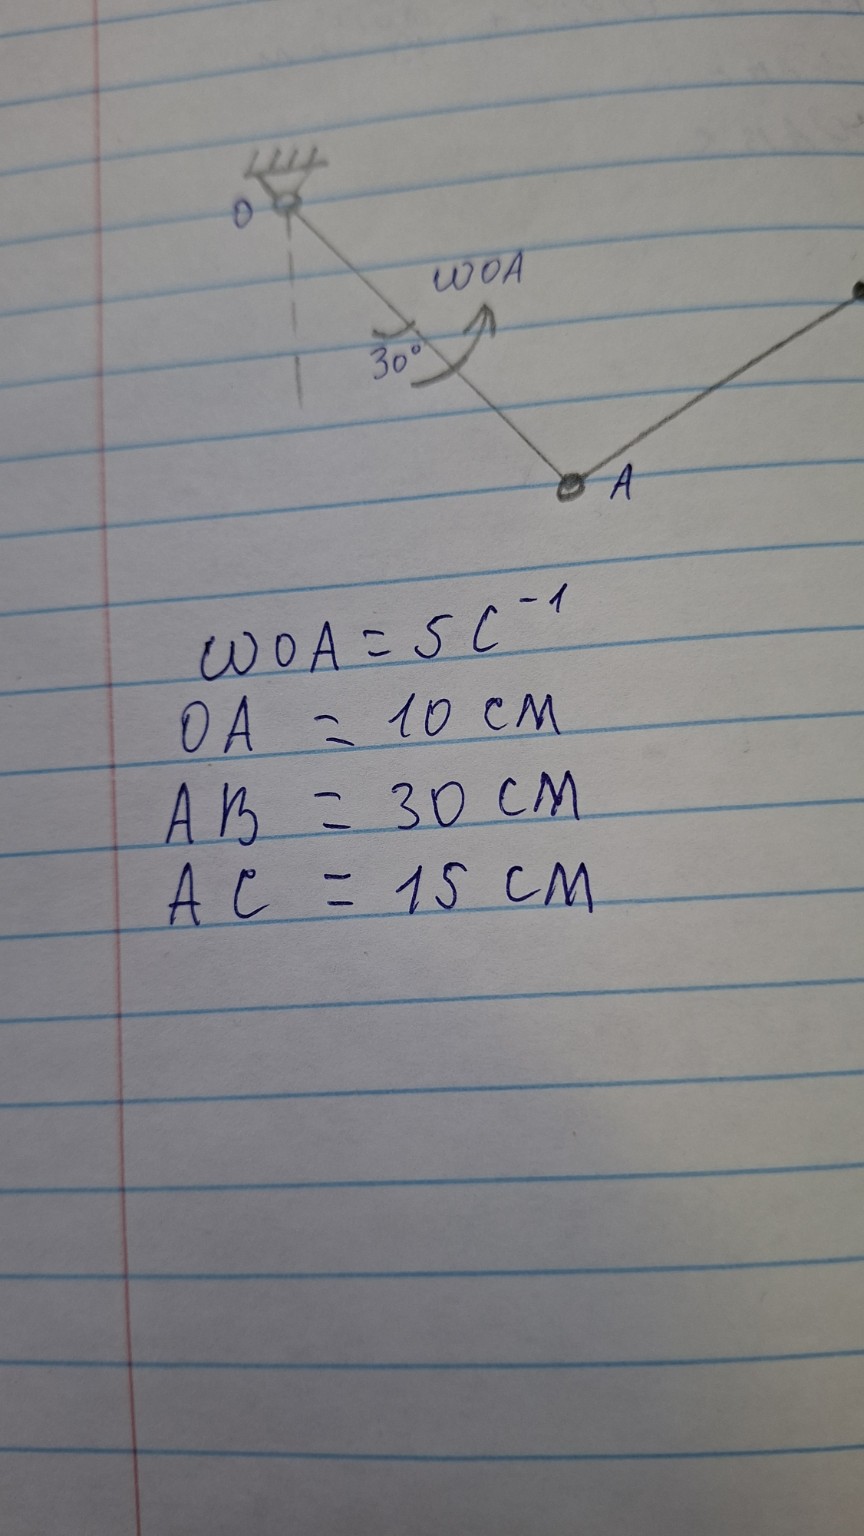 O
ωOA
30°
A
ωOA = 5 C⁻¹
OA = 10 см
AB = 30 см
AC = 15 см